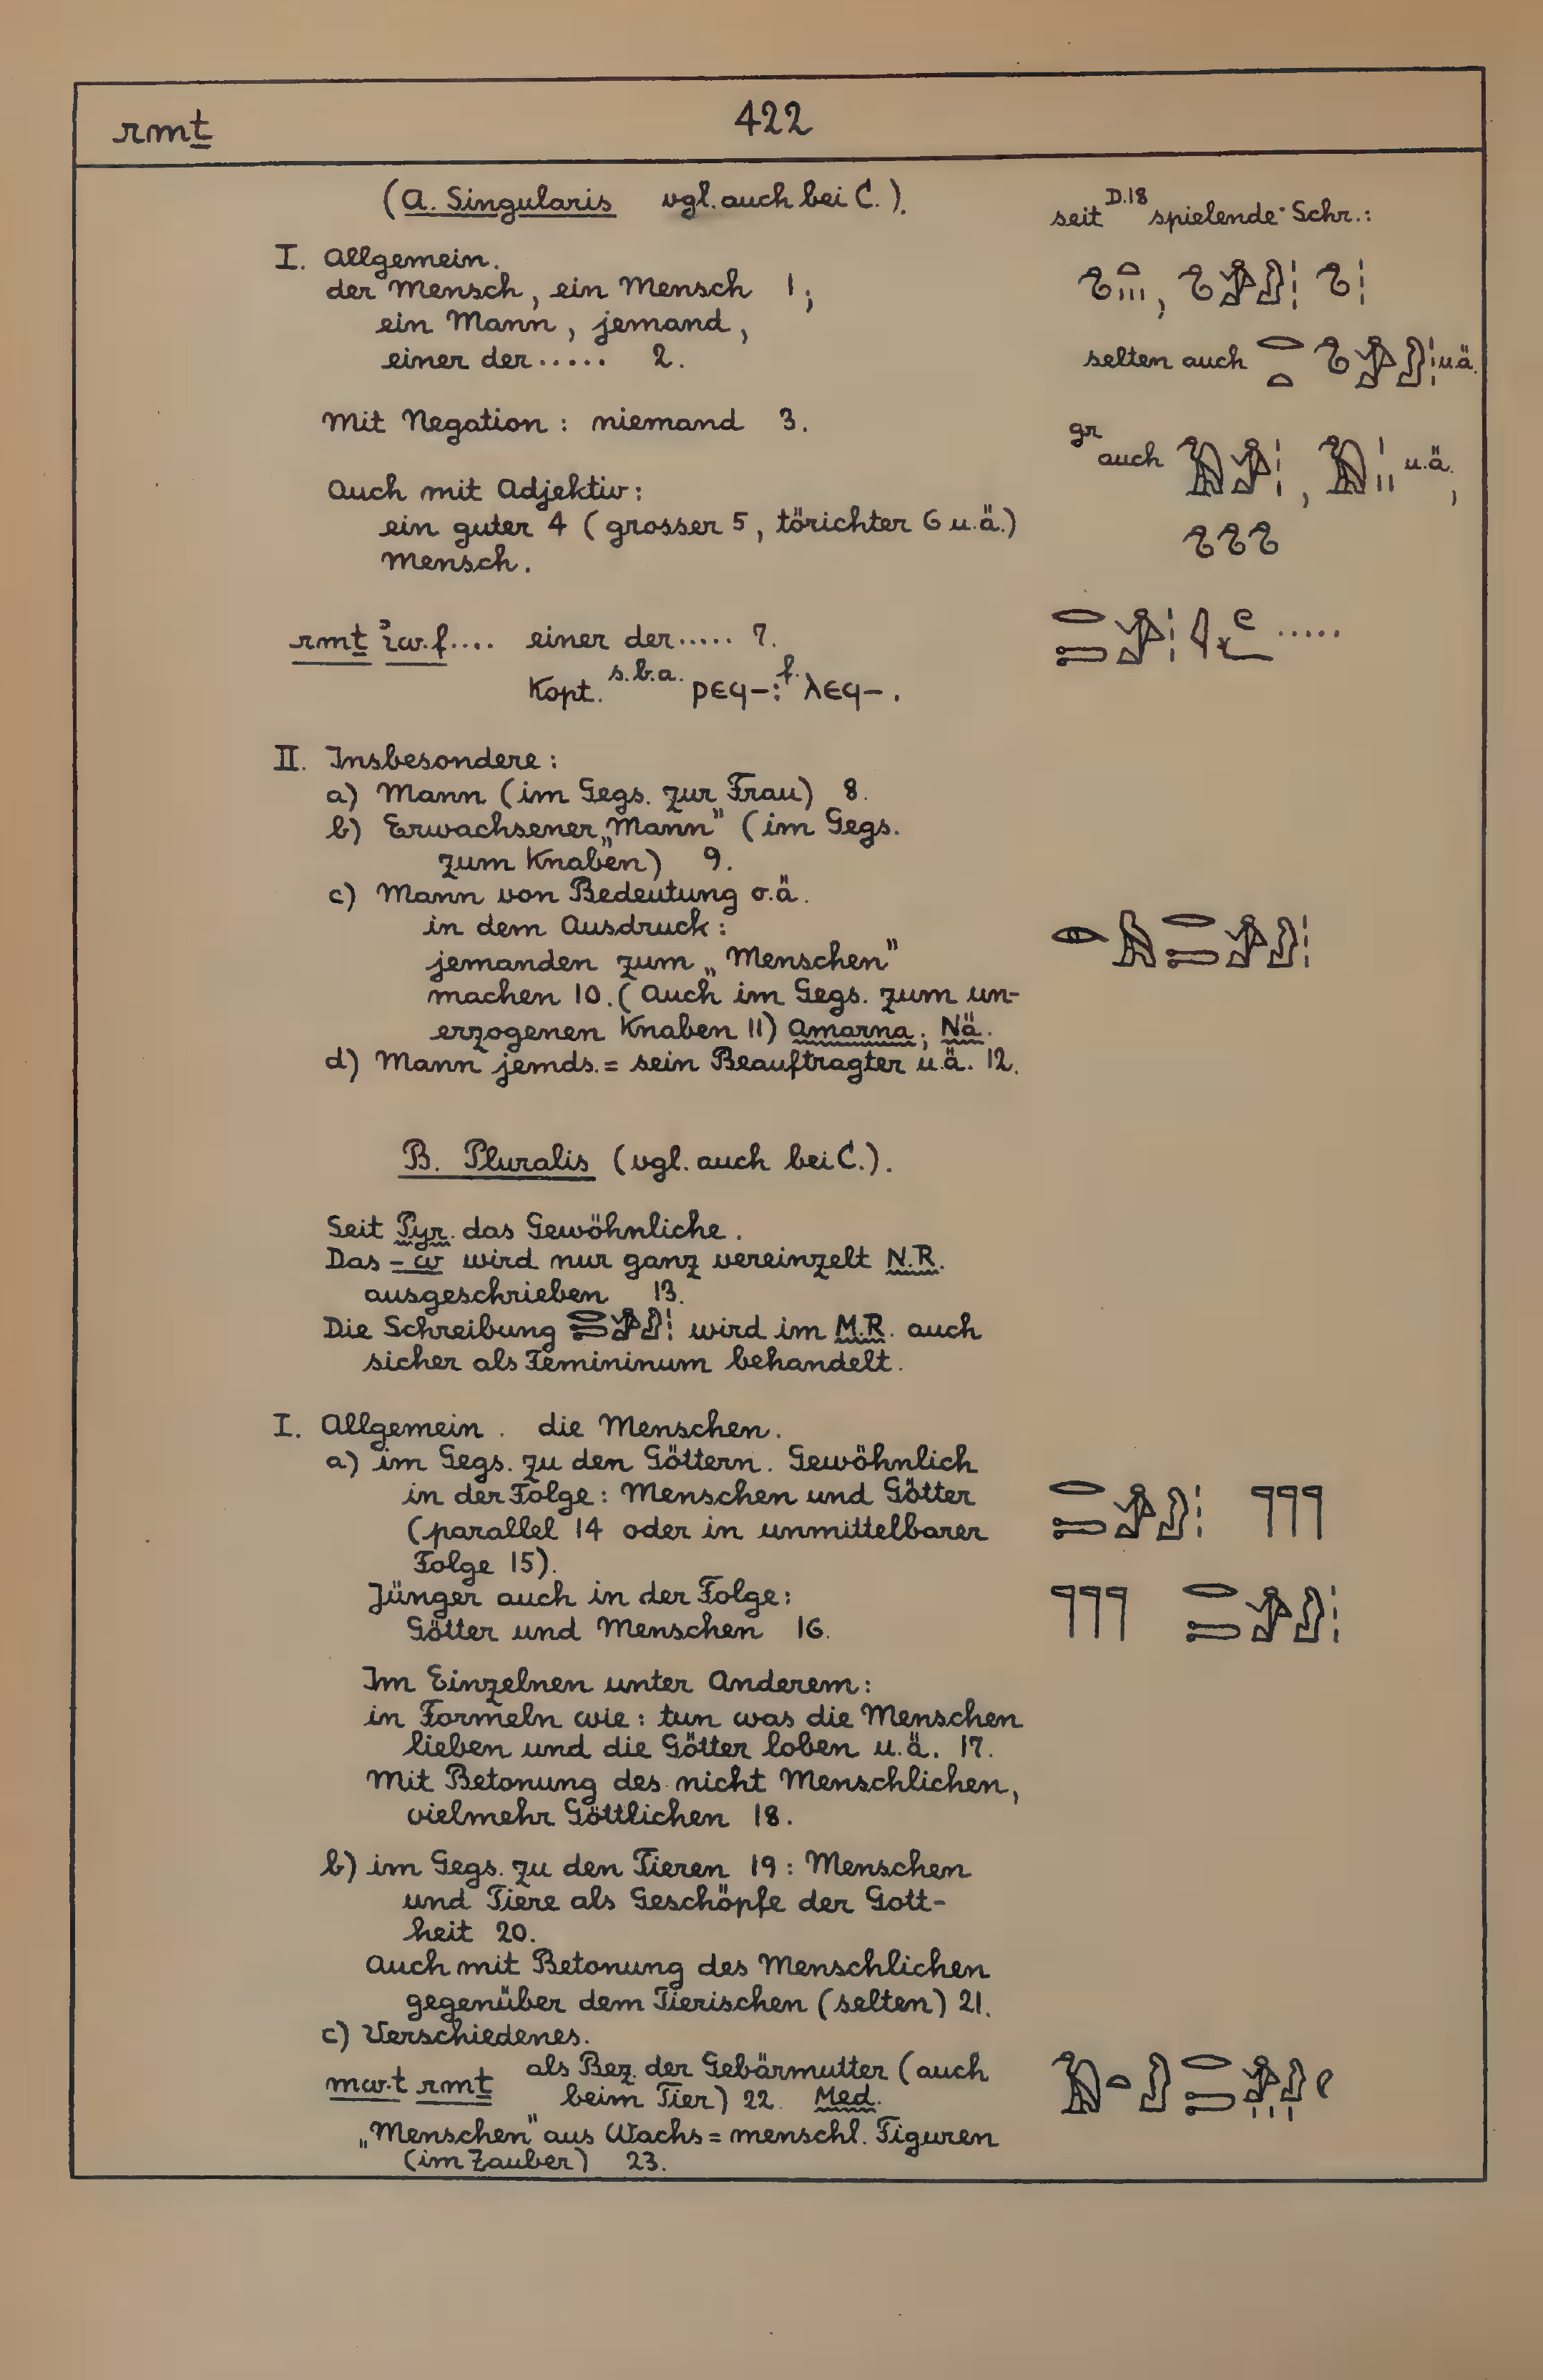 rmṯ
422
(A. Singularis vgl. auch bei C.).
seit D.18 spielende Schr.:
I. Allgemein.
der Mensch, ein Mensch 1;
ein Mann, jemand,
einer der ..... 2.
selten auch u.ä.
Mit Negation: niemand 3.
gr auch , u.ä.,
Auch mit Adjektiv:
ein guter 4 (grosser 5, törichter 6 u.ä.)
Mensch.
rmṯ ỉw.f .... einer der ..... 7.
.....
Kopt. s.b.a. ⲣⲉϥ-: f. ⲗⲉϥ-.
II. Insbesondere:
a) Mann (im Gegs. zur Frau) 8.
b) Erwachsener „Mann" (im Gegs.
zum Knaben) 9.
c) Mann von Bedeutung o.ä.
in dem Ausdruck:
jemanden zum „Menschen"
machen 10. (Auch im Gegs. zum un-
erzogenen Knaben 11) Amarna; Nä.
d) Mann jemds. = sein Beauftragter u.ä. 12.
B. Pluralis (vgl. auch bei C.).
Seit Pyr. das Gewöhnliche.
Das -w wird nur ganz vereinzelt N.R.
ausgeschrieben 13.
Die Schreibung 𓂋𓍿𓀀𓁐𓏥 wird im M.R. auch
sicher als Femininum behandelt.
I. Allgemein. die Menschen.
a) im Gegs. zu den Göttern. Gewöhnlich
in der Folge: Menschen und Götter
𓂋𓍿𓀀𓁐𓏥 𓊹𓊹𓊹
(parallel 14 oder in unmittelbarer
Folge 15).
Jünger auch in der Folge:
𓊹𓊹𓊹 𓂋𓍿𓀀𓁐𓏥
Götter und Menschen 16.
Im Einzelnen unter Anderem:
in Formeln wie: tun was die Menschen
lieben und die Götter loben u.ä. 17.
Mit Betonung des nicht Menschlichen,
vielmehr Göttlichen 18.
b) im Gegs. zu den Tieren 19: Menschen
und Tiere als Geschöpfe der Gott-
heit 20.
Auch mit Betonung des Menschlichen
gegenüber dem Tierischen (selten) 21.
c) Verschiedenes.
mw.t rmṯ als Bez. der Gebärmutter (auch
beim Tier) 22. Med.
„Menschen" aus Wachs = menschl. Figuren
(im Zauber) 23.